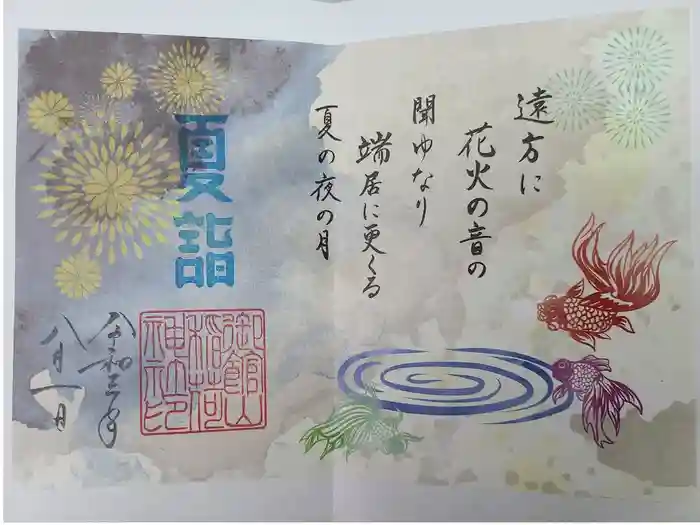 遠方に
花火の音の
聞ゆなり
端居に更くる
夏の夜の月
夏詣
御館山
稲荷
神社印
令和三年
八月一日